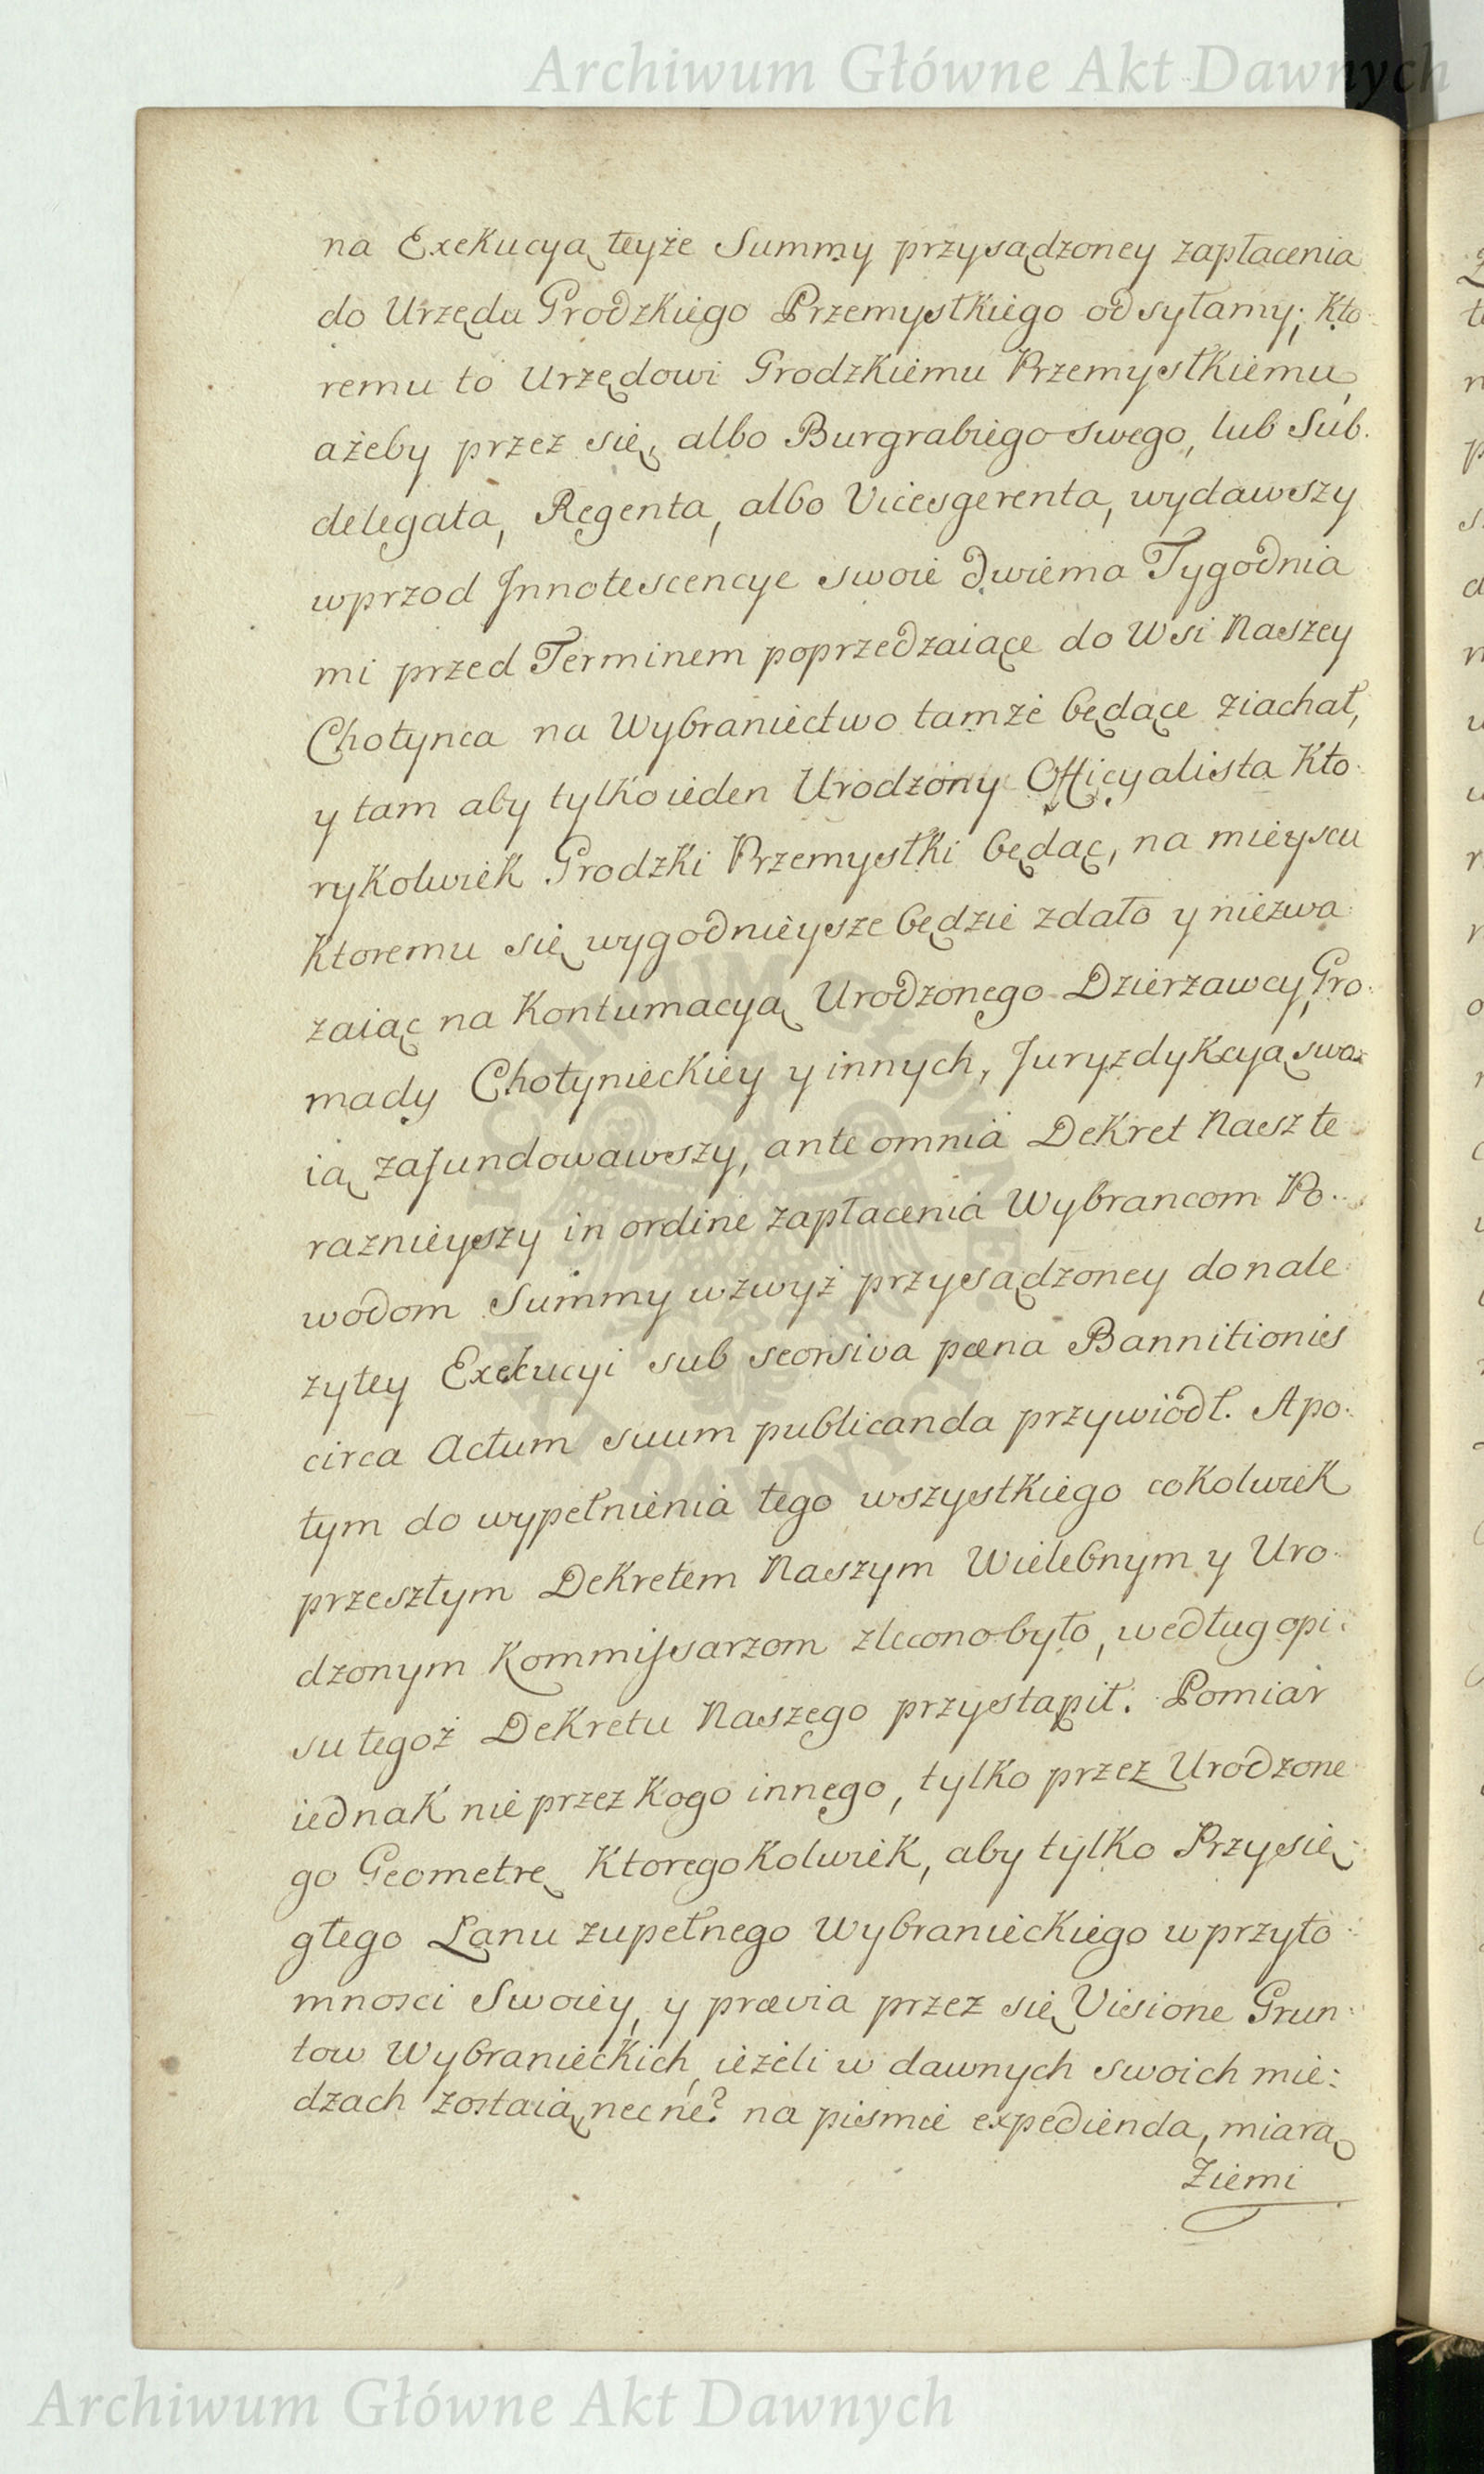 Archiwum Główne Akt Dawnych
na Exekucyą teyże Summy przysądzoney zapłacenia
do Urzędu Grodzkiego Przemyskiego odsyłamy; Kto-
remu to Urzędowi Grodzkiemu Przemyskiemu,
ażeby przez się, albo Burgrabiego swego, lub Sub-
delegata, Regenta, albo Vicesgerenta, wydawszy
wprzod Innotescencye swoie dwiema Tygodnia
mi przed Terminem poprzedzaiące do Wsi Naszey
Chotynca na Wybraniectwo tamże będące ziachał,
y tam aby tylko ieden Urodzony Officyalista Kto-
rykolwiek Grodzki Przemyski będąc, na mieyscu
Ktoremu się wygodnieysze będzie zdało y niezwa-
zaiąc na Kontumacyą Urodzonego Dzierzawcy, Gro-
mady Chotynieckiey y innych, Juryzdykcyą swo-
ią zafundowawszy, ante omnia Dekret Nasz te-
raznieyszy in ordine zapłacenia Wybrancom Po-
wodom Summy wzwyż przysądzoney do nale-
zytey Exekucyi sub seorsiva pæna Bannitionis
circa Actum suum publicanda przywiodł. A po-
tym do wypełnienia tego wszystkiego cokolwiek
przeszłym Dekretem Naszym Wielebnym y Uro-
dzonym Kommissarzom zlecono było, według opi-
su tegoż Dekretu Naszego przystąpił. Pomiar
iednak nie przez Kogo innego, tylko przez Urodzone
go Geometrę Ktoregokolwiek, aby tylko Przysię-
głego Łanu zupełnego Wybranieckiego w przyto-
mnosci Swoiey, y prævia przez się Visione Grun-
tow Wybranieckich, ieżeli w dawnych swoich mie:
dzach zostaią necne? na pismie expedienda, miarą
Ziemi
ARCHIWUM GŁÓWNE AKT DAWNYCH
Archiwum Główne Akt Dawnych